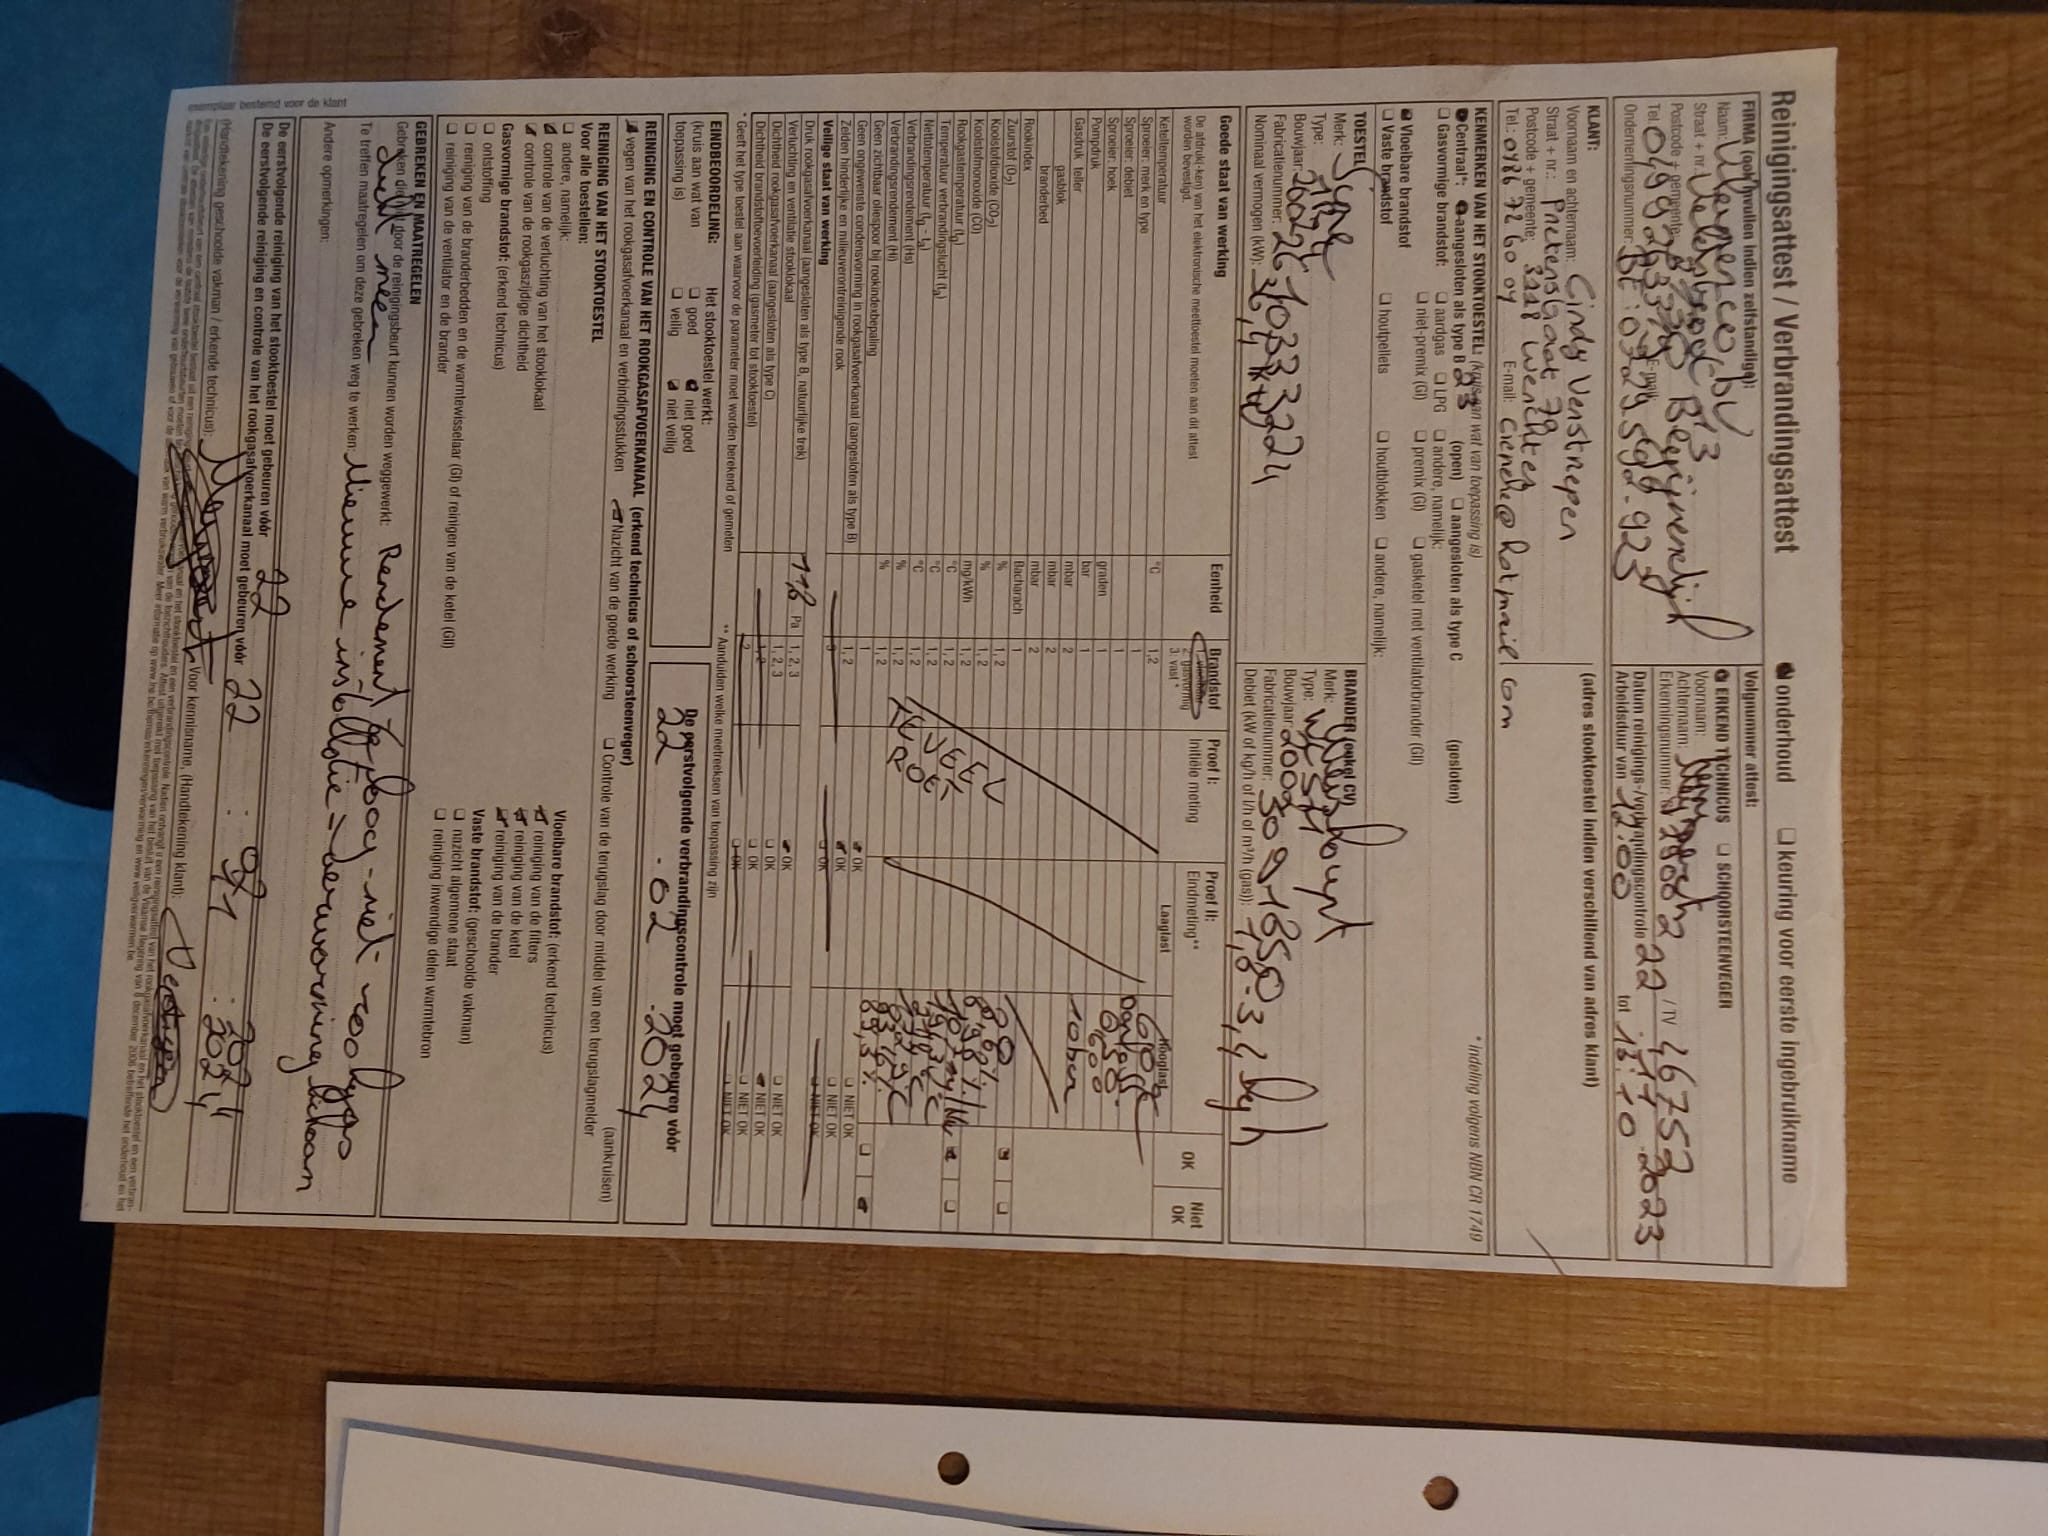 Reinigingsattest / Verbrandingsattest
onderhoud
keuring voor eerste ingebruikname
FIRMA (ook invullen indien zelfstandige):
Naam: bv
Straat + nr.: 13
Postcode + gemeente: Begijnendijk
Tel. E-mail:
Ondernemingsnummer: BE:0729.592.923
Volgnummer attest:
ERKEND TECHNICUS SCHOORSTEENVEGER
Voornaam:
Achternaam:
Erkenningsnummer: / TV 46752
Datum reinigings-/verbrandingscontrole 22 . 11 . 2023
Arbeidsduur van 12:00 tot 13:10
KLANT:
Voornaam en achternaam: Cindy Verstrepen
Straat + nr.: 79
Postcode + gemeente: 3118 Werchter
Tel.: 0486 72 60 04 E-mail: cieneke@hotmail.com
(adres stooktoestel indien verschillend van adres klant)
KENMERKEN VAN HET STOOKTOESTEL: (kruis aan wat van toepassing is) * indeling volgens NBN CR 1749
Centraal*: aangesloten als type B 23 (open) aangesloten als type C (gesloten)
Gasvormige brandstof: aardgas LPG andere, namelijk:
niet-premix (GI) premix (GI) gasketel met ventilatorbrander (GII)
Vloeibare brandstof
Vaste brandstof houtpellets houtblokken andere, namelijk:
TOESTEL
Merk: Sime
Type:
Bouwjaar: 2002
Fabricatienummer:
Nominaal vermogen (kW): 36,4 kW
BRANDER (enkel CV)
Merk: Weishaupt
Type:
Bouwjaar: 2002
Fabricatienummer:
Debiet (kW of kg/h of l/h of m³/h (gas)): 1,6-3,4 kg/h
Goede staat van werking Eenheid Brandstof Proef I: Proef II: OK Niet OK
De afdruk(-ken) van het elektronische meettoestel moeten aan dit attest worden bevestigd.
1. vloeibaar
2. gasvormig
3. vast *
Initiële meting Eindmeting**
Laaglast Hooglast
Keteltemperatuur °C 1,2 60°C
Sproeier: merk en type 1 Danfoss
Sproeier: debiet 1 0,50
Sproeier: hoek graden 1 60°
Pompdruk bar 1 10 bar
Gasdruk teller mbar 2
gasblok mbar 2
branderbed mbar 2
Rookindex Bacharach 1
Zuurstof (O2) % 1, 2
Koolstofdioxide (CO2) % 1, 2 8,98 %
Koolstofmonoxide (CO) mg/kWh 1, 2
Rookgastemperatuur (tg) °C 1, 2
Temperatuur verbrandingslucht (ta) °C 1, 2
Nettotemperatuur (tg - ta) °C 1, 2
Verbrandingsrendement (Hs) % 1, 2
Verbrandingsrendement (Hi) % 1, 2 89,3 %
TE VEEL ROET
Geen zichtbaar oliespoor bij rookindexbepaling 1 OK NIET OK
Geen ongewenste condensvorming in rookgasafvoerkanaal (aangesloten als type B) 1, 2 OK NIET OK
Zelden hinderlijke en milieuverontreinigende rook 3 OK NIET OK
Veilige staat van werking
Druk rookgasafvoerkanaal (aangesloten als type B, natuurlijke trek) Pa 1, 2, 3 OK NIET OK
Verluchting en ventilatie stooklokaal 1, 2, 3 OK NIET OK
Dichtheid rookgasafvoerkanaal (aangesloten als type C) 1, 2 OK NIET OK
Dichtheid brandstoftoevoerleiding (gasmeter tot stooktoestel) 2 OK NIET OK
* Geeft het type toestel aan waarvoor de parameter moet worden berekend of gemeten ** Aanduiden welke meetreeksen van toepassing zijn
EINDBEOORDELING: Het stooktoestel werkt:
(kruis aan wat van toepassing is) goed niet goed
veilig niet veilig
De eerstvolgende verbrandingscontrole moet gebeuren vóór
22 . 02 . 2024
REINIGING EN CONTROLE VAN HET ROOKGASAFVOERKANAAL (erkend technicus of schoorsteenveger)
vegen van het rookgasafvoerkanaal en verbindingsstukken Nazicht van de goede werking Controle van de terugslag door middel van een terugslagmelder (aankruisen)
REINIGING VAN HET STOOKTOESTEL
Voor alle toestellen:
andere, namelijk:
controle van de verluchting van het stooklokaal
controle van de rookgaszijdige dichtheid
Gasvormige brandstof: (erkend technicus)
ontstoffing
reiniging van de branderbedden en de warmtewisselaar (GI) of reinigen van de ketel (GII)
reiniging van de ventilator en de brander
Vloeibare brandstof: (erkend technicus)
reiniging van de filters
reiniging van de ketel
reiniging van de brander
Vaste brandstof: (geschoolde vakman)
nazicht algemene staat
reiniging inwendige delen warmtebron
GEBREKEN EN MAATREGELEN
Gebreken die niet door de reinigingsbeurt kunnen worden weggewerkt: Rendement te laag - niet rookgas
dicht meer
Te treffen maatregelen om deze gebreken weg te werken: Nieuwe installatie = verwarming
Andere opmerkingen:
De eerstvolgende reiniging van het stooktoestel moet gebeuren vóór 22 . 02 . 2024
De eerstvolgende reiniging en controle van het rookgasafvoerkanaal moet gebeuren vóór 22 . 11 . 2024
(Handtekening geschoolde vakman / erkende technicus): Voor kennisname, (Handtekening klant):
exemplaar bestemd voor de klant